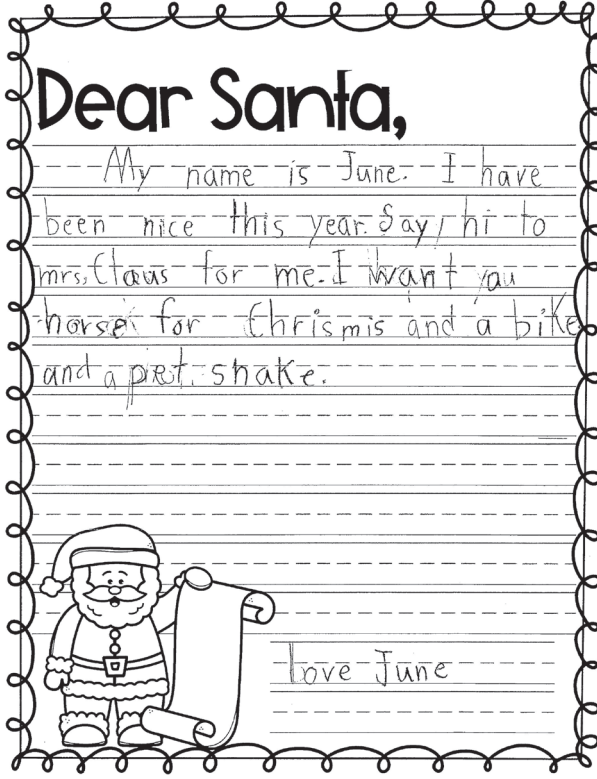 Dear Santa,
My name is June. I have
been nice this year. Say, hi to
mrs, Claus for me. I want you
horse for Chrismis and a bike
and a piet. snake.
Love June